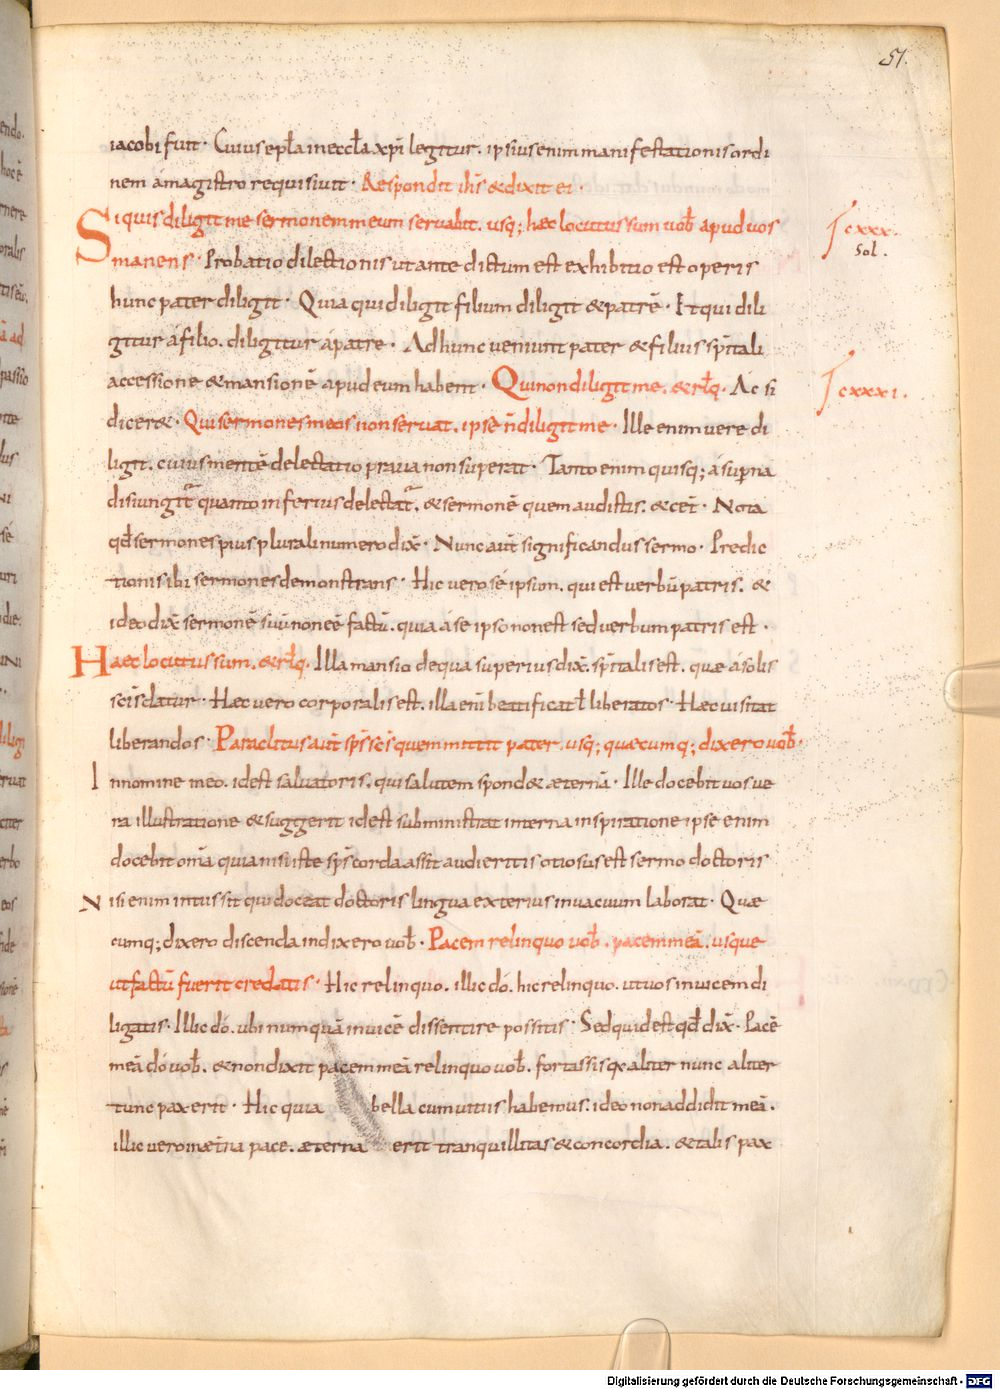 51.
iacobi fuit · Cuius epła in eccła xp̄i legitur · ipsius enim manifestationis ordi
nem a magistro requisiuit · Respondit ih̄s & dixit ei ·
Si quis diligit me sermonem meum seruabit . usq; haec locutus sum uob̄ apud uos
manens · Probatio dilectionis ut ante dictum est exhibitio est operis
hunc pater diligit · Quia qui diligit filium diligit & patrē · Et qui dili
gitur á filio . diligitur á patre · Ad hunc ueniunt pater & filius sp̄itali
accessione & mansionē apud eum habent · Qui non diligit me . & rłq · Ac si
dicer& · Qui sermones meos non seruat . ipse n̄ diligit me · Ille enim uere di
ligit . cuius mentē delectatio praua non superat · Tanto enim quisq; á sup̄na
disiungit̄ quanto inferius delectat̄ . & sermonē quem audistis . & cet̄ · Nota
qđ sermones prius plurali numero dix̄ · Nunc aut̄ significandus sermo · Predic
tionis ibi sermones demonstrans · Hic uero sé ipsum . qui est uerbū patris . &
ideo dix̄ sermonē suū non eē factū . quia á se ipso non est sed uerbum patris est ·
Haec locutus sum . & rłq · Illa mansio de qua superius dix̄ . sp̄italis est . quae á solis
sc̄is datur · Haec uero corporalis est . illa eni beatificat ł liberatos · Haec uisitat
liberandos · Paraclitus aut̄ sp̄s sc̄s quem mittit pater . usq; quaecumq; dixero uob̄ ·
In nomine meo . id est saluatoris . qui salutem spond& aeternā · Ille docebit uos ue
ra illustratione & suggerit id est subministrat interna inspiratione ipse enim
docebit om̄a quia nisi iste sp̄s corda assit audieritis otiosus est sermo doctoris
Nisi enim intus sit qui doceat doctoris lingua exterius in uacuum laborat · Quae
cumq; dixero discenda indixero uob̄ · Pacem relinquo uob̄ . pacem meā . usque
ut factū fuerit credatis · Hic relinquo . illic dó . hic relinquo . ut uos inuicem di
ligatis · Illic dó . ubi numquā inuicē dissentire possitis · Sed quid est qđ dix̄ · Pacē
meā dó uob̄ . & non dixit pacem meā relinquo uob̄ . fortassis qx aliter nunc aliter
tunc pax erit · Hic quia bella cum uitiis habemus . ideo non addidit meā .
illic uero in aet̄na pace . aeterna erit tranquillitas & concordia . & talis pax
cxxx.
Sol .
cxxxi .
Digitalisierung gefördert durch die Deutsche Forschungsgemeinschaft - DFG